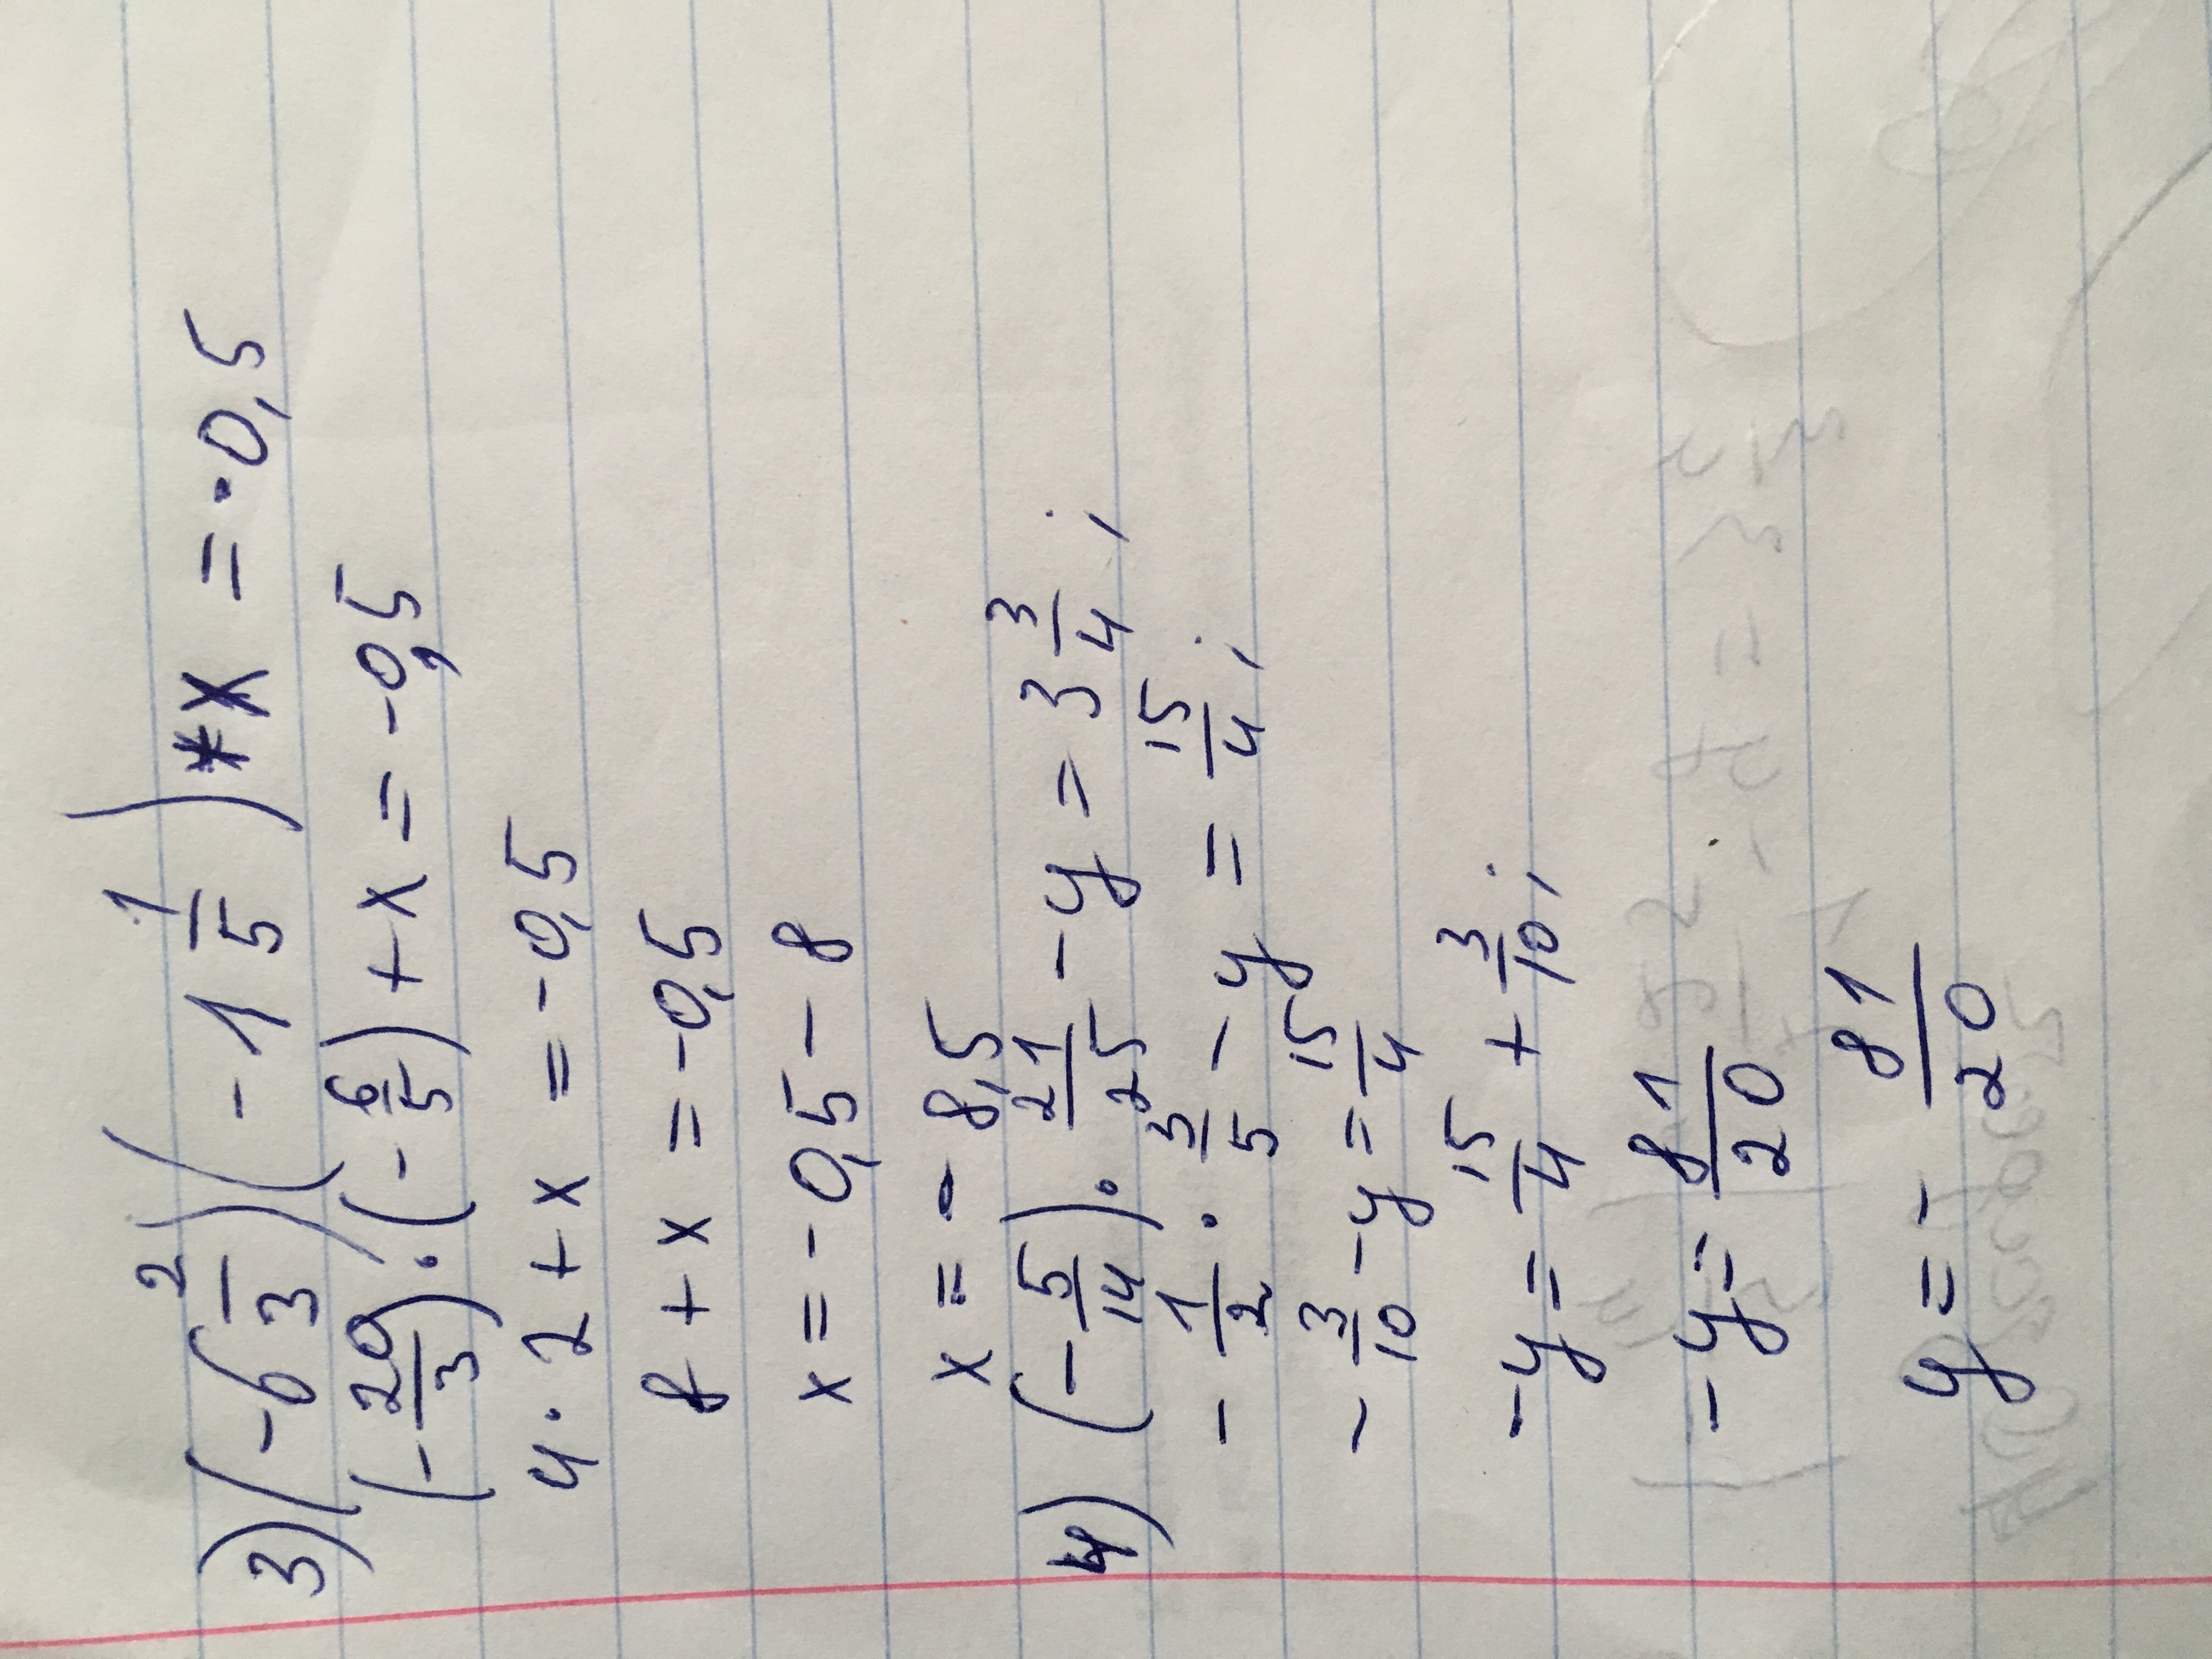 3) (-6 2/3)(-1 1/5) *x = -0,5
(-20/3)·(-6/5)+x = -0,5
4·2+x=-0,5
8+x=-0,5
x=-0,5-8
x=-8,5
4) (-5/14)·21/25-y=3 3/4;
-1/2·3/5-y=15/4;
-3/10-y=15/4
-y=15/4+3/10;
-y=81/20
y=-81/20